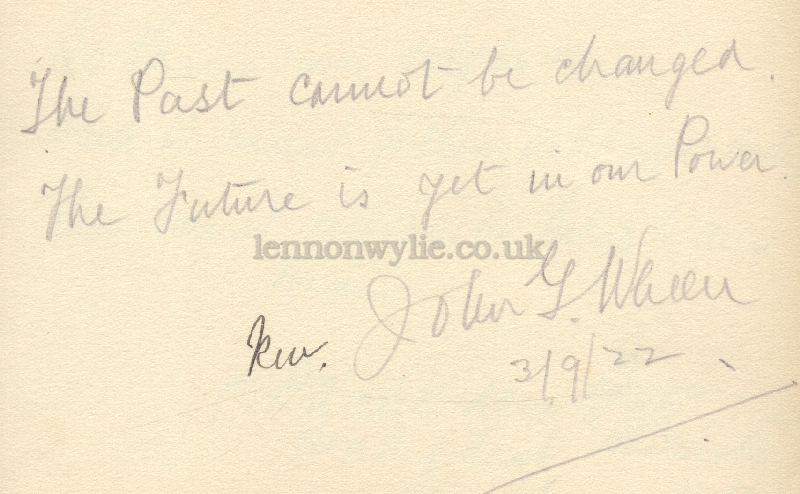 The Past cannot be changed.
The Future is yet in our Power.
lennonwylie.co.uk
Rev. John G. Wheen
3/9/22